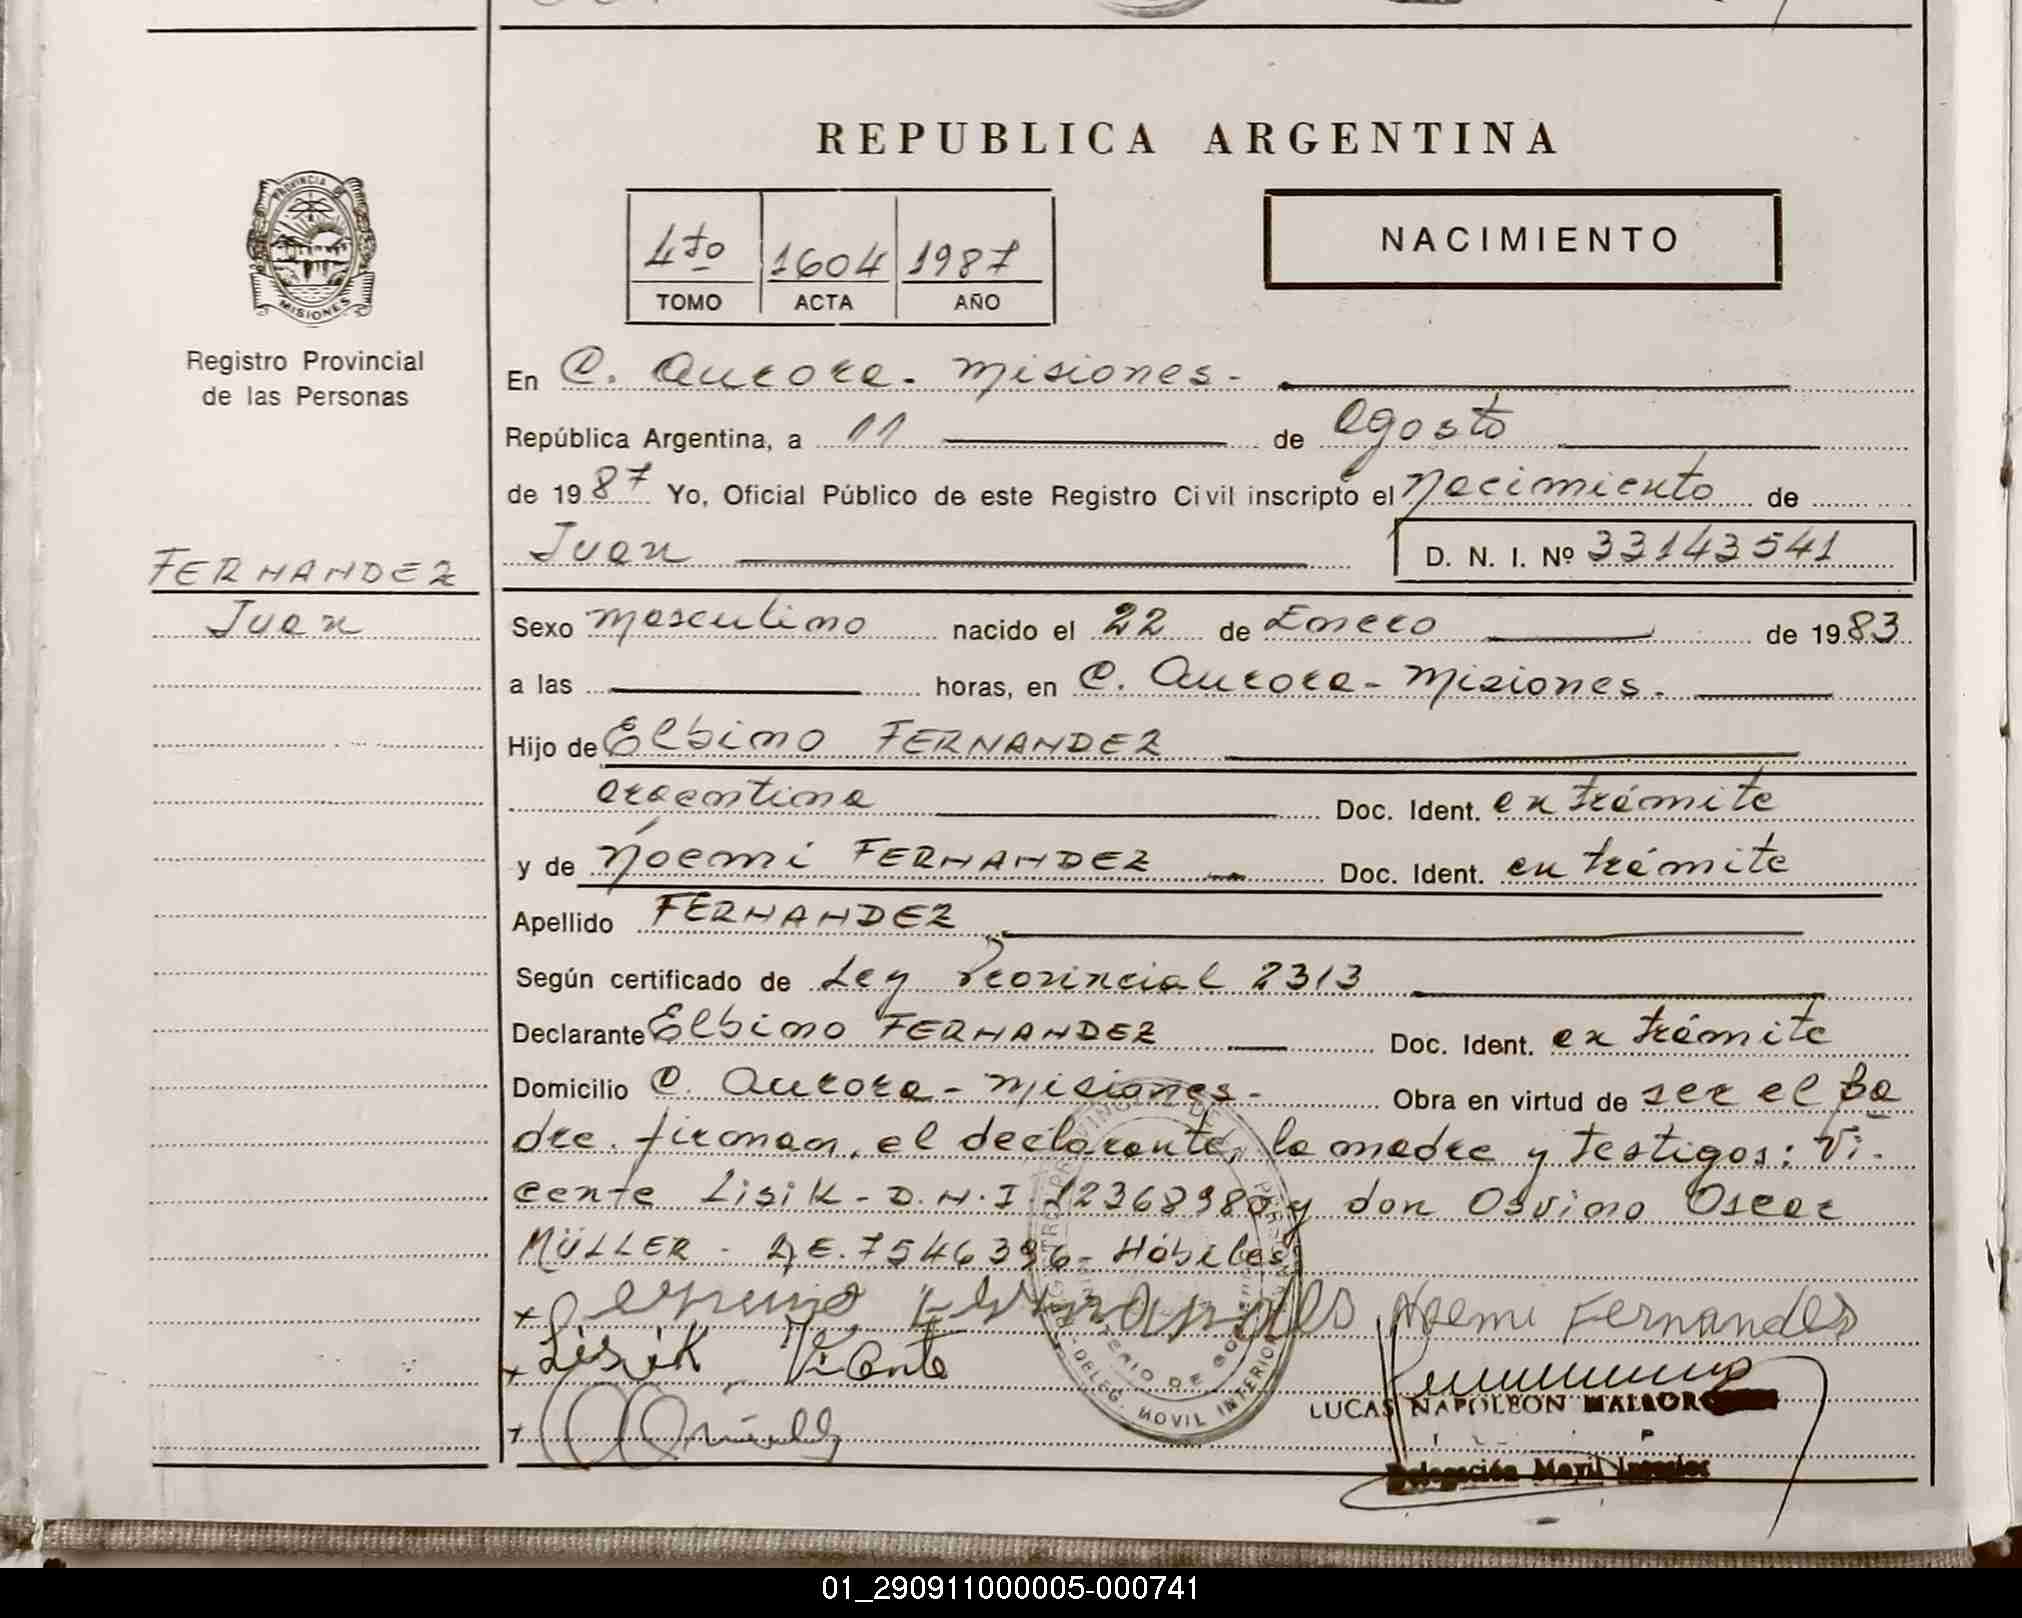 REPUBLICA ARGENTINA
PROVINCIA DE
MISIONES
Registro Provincial
de las Personas
4to 1604 1987
TOMO ACTA AÑO
NACIMIENTO
En C. Aurora - Misiones -
República Argentina, a 11 de Agosto
de 1987 Yo, Oficial Público de este Registro Civil inscripto el Nacimiento de
Juan D. N. I. Nº 33143541
FERNANDEZ
Juan
Sexo Masculino nacido el 22 de Enero de 1983
a las horas, en C. Aurora - Misiones.
Hijo de Elbino FERNANDEZ
argentina Doc. Ident. en trámite
y de Noemi FERNANDEZ Doc. Ident. en trámite
Apellido FERNANDEZ
Según certificado de Ley Provincial 2313
Declarante Elbino FERNANDEZ Doc. Ident. en trámite
Domicilio C. Aurora - Misiones - Obra en virtud de ser el Pa
dre. firman, el declarante, la madre y testigos: Vi-
cente Lisik - D.N.I. 12368980 y don Osvino Oscar
MÜLLER - L.E. 7546396 - Hábiles
Noemi Fernandes
Lisik Vicente
LUCAS NAPOLEON
DELEG. MOVIL INTERIOR
Delegación Movil Interior
01_290911000005-000741